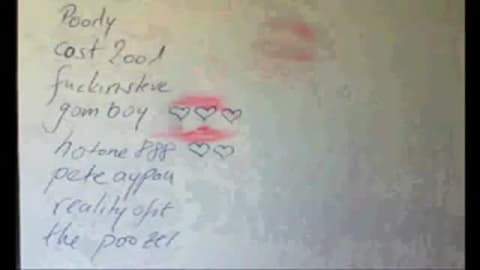 Poorly
cost 2001
fuckinsteve
gomboy ♡♡♡
hotone888 ♡♡
pete aypau
realityofit
the poozer